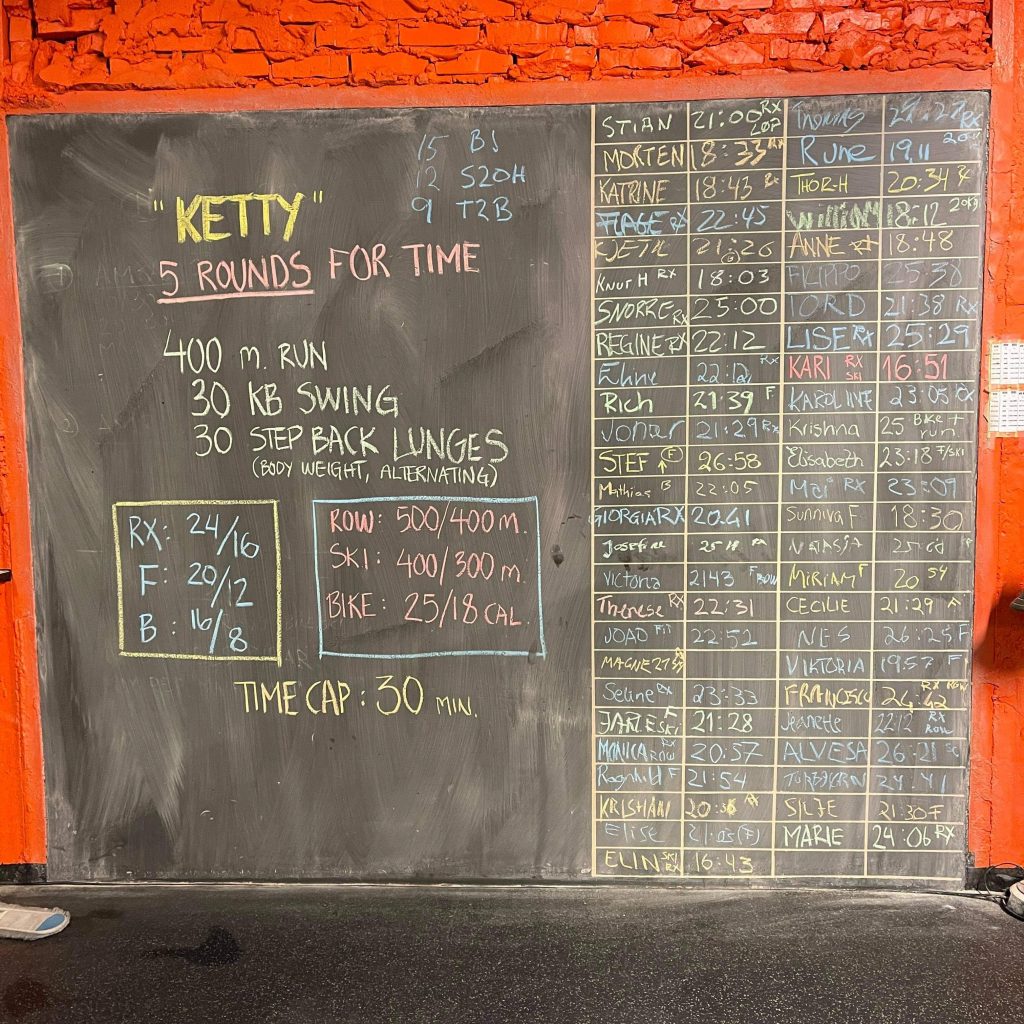 15 BJ
12 S2OH
9 T2B
"KETTY"
5 ROUNDS FOR TIME
400 m. RUN
30 KB SWING
30 STEP BACK LUNGES
(BODY WEIGHT, ALTERNATING)
RX: 24/16
F: 20/12
B: 16/8
ROW: 500/400 m.
SKI: 400/300 m.
BIKE: 25/18 CAL.
TIME CAP: 30 MIN.
STIAN 21:00 RX
MORTEN 18:33 RX
KATRINE 18:43 Rx
RX 22:45
21:26
KNUT H RX 18:03
SNORRE RX 25:00
REGINE RX 22:12
Eline RX
Rich 21:39 F
Jonar 21:29 RX
STEF (F) 26:58
Mathias B 22:05
GIORGIA RX 20.41
Josefine
Victoria 2143 F ROW
Therese RX 22:31
JOAO 22:52
MAGNE
Seline RX 23:33
JARLE F SKI 21:28
MONICA RX ROW 20:57
Ragnhild F 21:54
KRISHANI
Elise (F)
ELIN SKI RX 16:43
Thomas RX
Rune 19,11
THOR-H 20:34
William 18:12
ANNE RX 18:48
FILIPPO 25:38
TORD 21:38 RX
LISE RX 25:29
KARI RX SKI 16:51
KAROLINE 23:05
Krishna 25 BIKE + run
Elisabeth 23:18 F/SKI
Mai RX 23:09
Sunniva F 18:30
NATASJA
MIRIAM F 20 54
CECILIE 21:29
NES 26:25 F
VIKTORIA 19:57 F
FRANCISCO 24:42 RX ROW
Jeanette 22 12 RX ROW
ALVESA 26:21 SC
TORBJØRN
SILJE 21:30 F
MARIE 24:06 RX